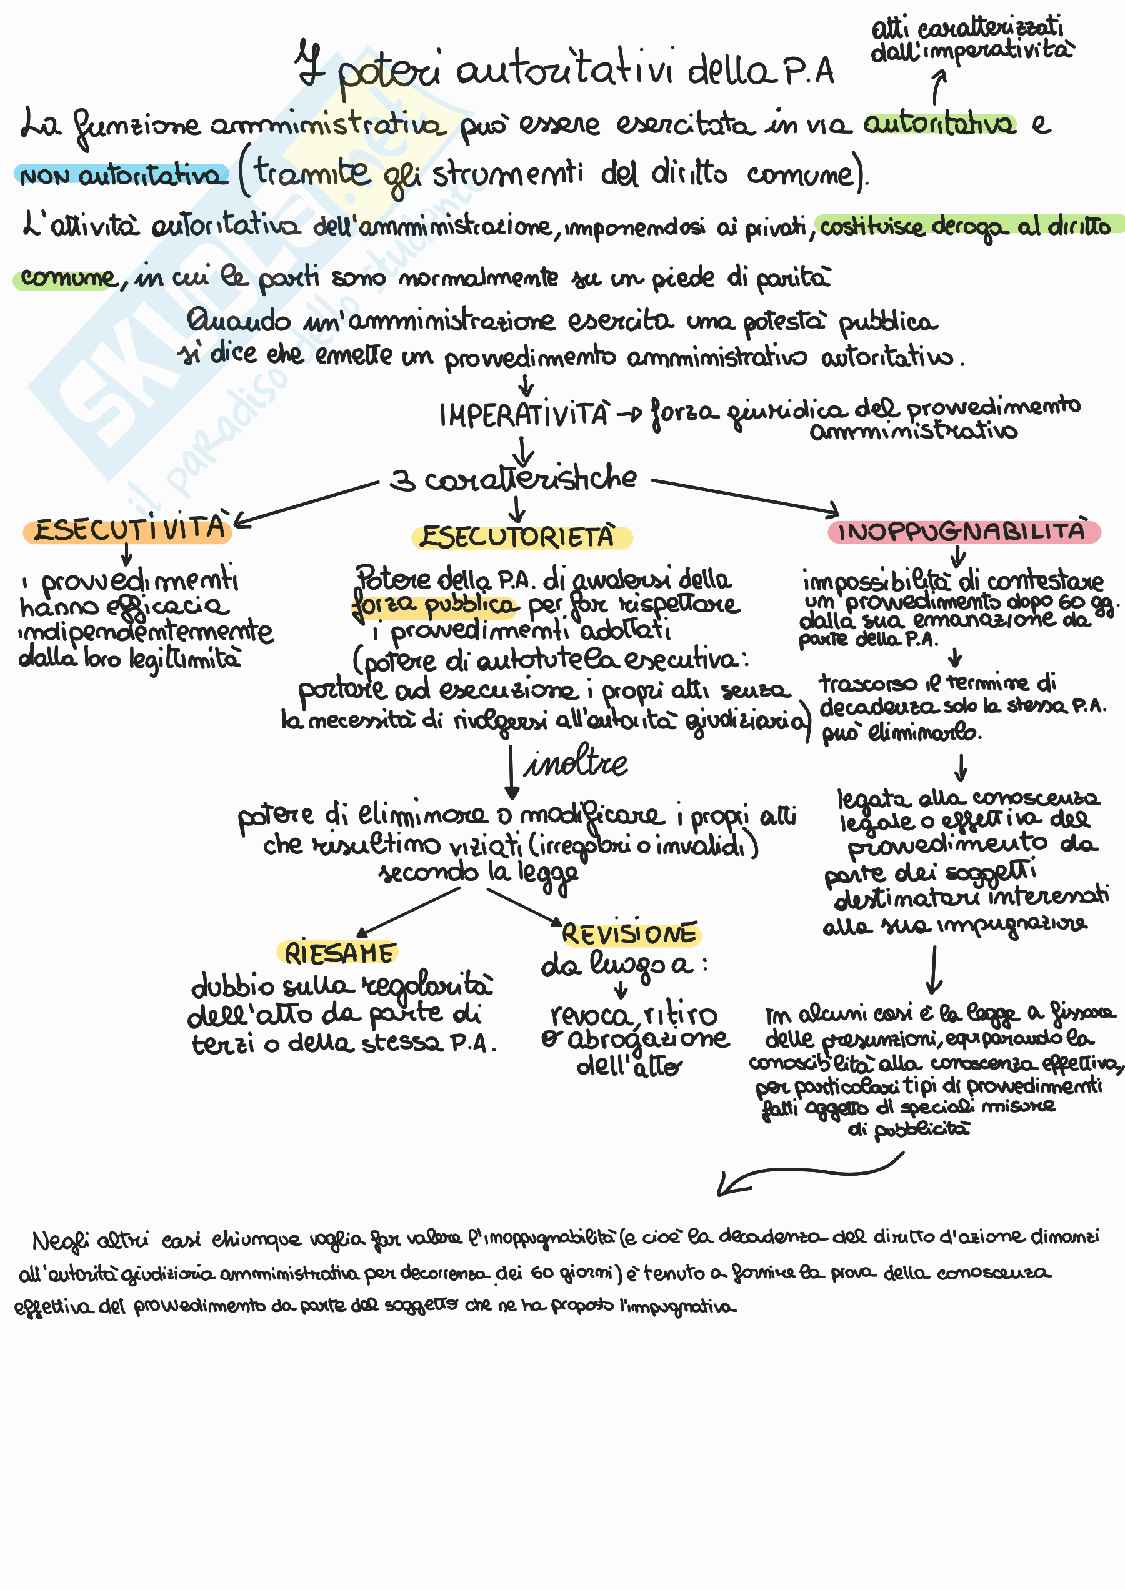 atti caratterizzati
dall'imperatività
I poteri autoritativi della P.A
La funzione amministrativa può essere esercitata in via autoritativa e
NON autoritativa (tramite gli strumenti del diritto comune).
L'attività autoritativa dell'amministrazione, imponendosi ai privati, costituisce deroga al diritto
comune, in cui le parti sono normalmente su un piede di parità
Quando un'amministrazione esercita una potestà pubblica
si dice che emette un provvedimento amministrativo autoritativo.
IMPERATIVITÀ → forza giuridica del provvedimento
amministrativo
3 caratteristiche
ESECUTIVITÀ
i provvedimenti
hanno efficacia
indipendentemente
dalla loro legittimità
ESECUTORIETÀ
Potere della P.A. di avvalersi della
forza pubblica per far rispettare
i provvedimenti adottati
(potere di autotutela esecutiva:
portare ad esecuzione i propri atti senza
la necessità di rivolgersi all'autorità giudiziaria)
inoltre
potere di eliminare o modificare i propri atti
che risultino viziati (irregolari o invalidi)
secondo la legge
RIESAME
dubbio sulla regolarità
dell'atto da parte di
terzi o della stessa P.A.
REVISIONE
da luogo a:
revoca, ritiro
o abrogazione
dell'atto
INOPPUGNABILITÀ
impossibilità di contestare
un provvedimento dopo 60 gg.
dalla sua emanazione da
parte della P.A.
trascorso il termine di
decadenza solo la stessa P.A.
può eliminarlo.
legata alla conoscenza
legale o effettiva del
provvedimento da
parte dei soggetti
destinatari interessati
alla sua impugnazione
In alcuni casi è la legge a fissare
delle presunzioni, equiparando la
conoscibilità alla conoscenza effettiva,
per particolari tipi di provvedimenti
fatti oggetto di speciali misure
di pubblicità
Negli altri casi chiunque voglia far valere l'inoppugnabilità (e cioè la decadenza del diritto d'azione dinanzi
all'autorità giudiziaria amministrativa per decorrenza dei 60 giorni) è tenuto a fornire la prova della conoscenza
effettiva del provvedimento da parte del soggetto che ne ha proposto l'impugnativa
SKUOLA.net
il paradiso dello studente